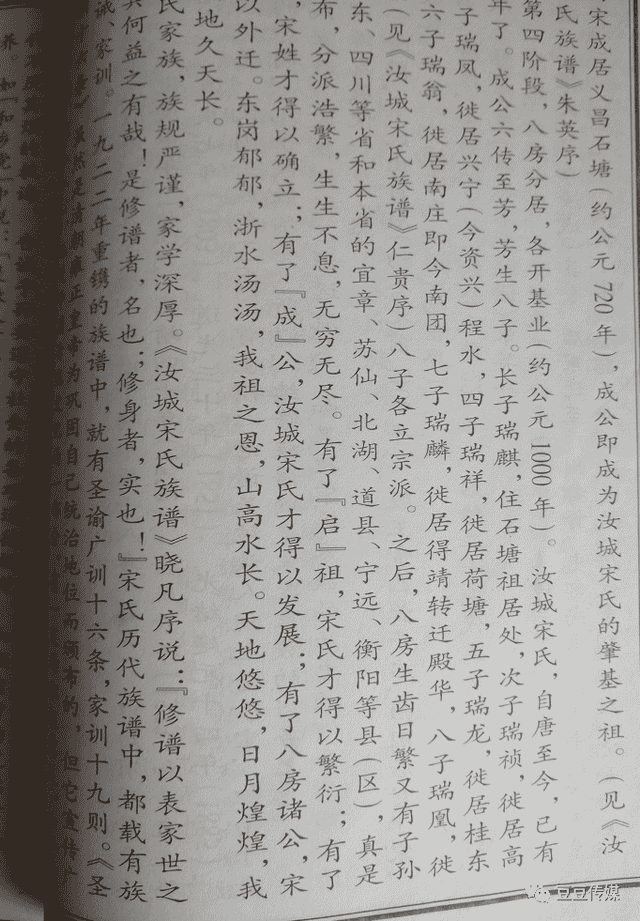 宋成居义昌石塘(约公元720年),成公即成为汝城宋氏的肇基之祖。(见《汝
氏族谱》朱英序)
第四阶段,八房分居,各开基业(约公元1000年)。汝城宋氏,自唐至今,已有
年了。成公六传至芳,芳生八子。长子瑞麒,住石塘祖居处,次子瑞祯,徙居高
子瑞凤,徙居兴宁(今资兴)程水,四子瑞祥,徙居荷塘,五子瑞龙,徙居桂东
六子瑞翁,徙居南庄即今南团,七子瑞麟,徙居得靖转迁殿华,八子瑞凰,徙
(见《汝城宋氏族谱》仁贵序)八子各立宗派。之后,八房生齿日繁又有子孙
东、四川等省和本省的宜章、苏仙、北湖、道县、宁远、衡阳等县(区),真是
布,分派浩繁,生生不息,无穷无尽。有了『启』祖,宋氏才得以繁衍;有了
,宋姓才得以确立;有了『成』公,汝城宋氏才得以发展;有了八房诸公,宋
以外迁。东岗郁郁,浙水汤汤,我祖之恩,山高水长。天地悠悠,日月煌煌,我
地久天长。
氏家族,族规严谨,家学深厚。《汝城宋氏族谱》晓凡序说:『修谱以表家世之
其何益之有哉!是修谱者,名也;修身者,实也!』宋氏历代族谱中,都载有族
诫、家训。一九二二年重镌的族谱中,就有圣谕广训十六条,家训十九则。《圣
虽然是清朝雍正皇帝为巩固自己统治地位而颁布的,但它宣传
豆豆传媒